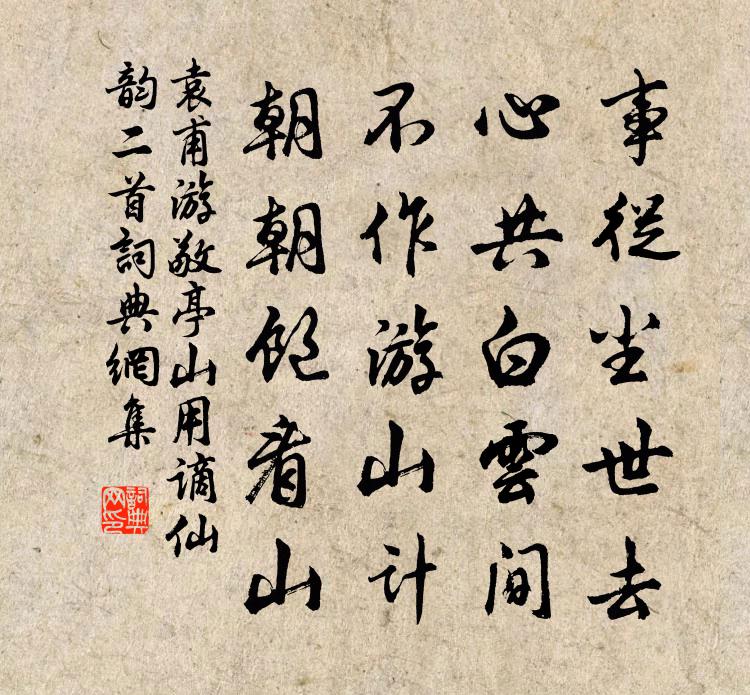 事從尘世去
心共白雲間
不作游山计
朝朝飽看山
袁甫游敬亭山用谪仙
韵二首詞典網集
詞典
网印